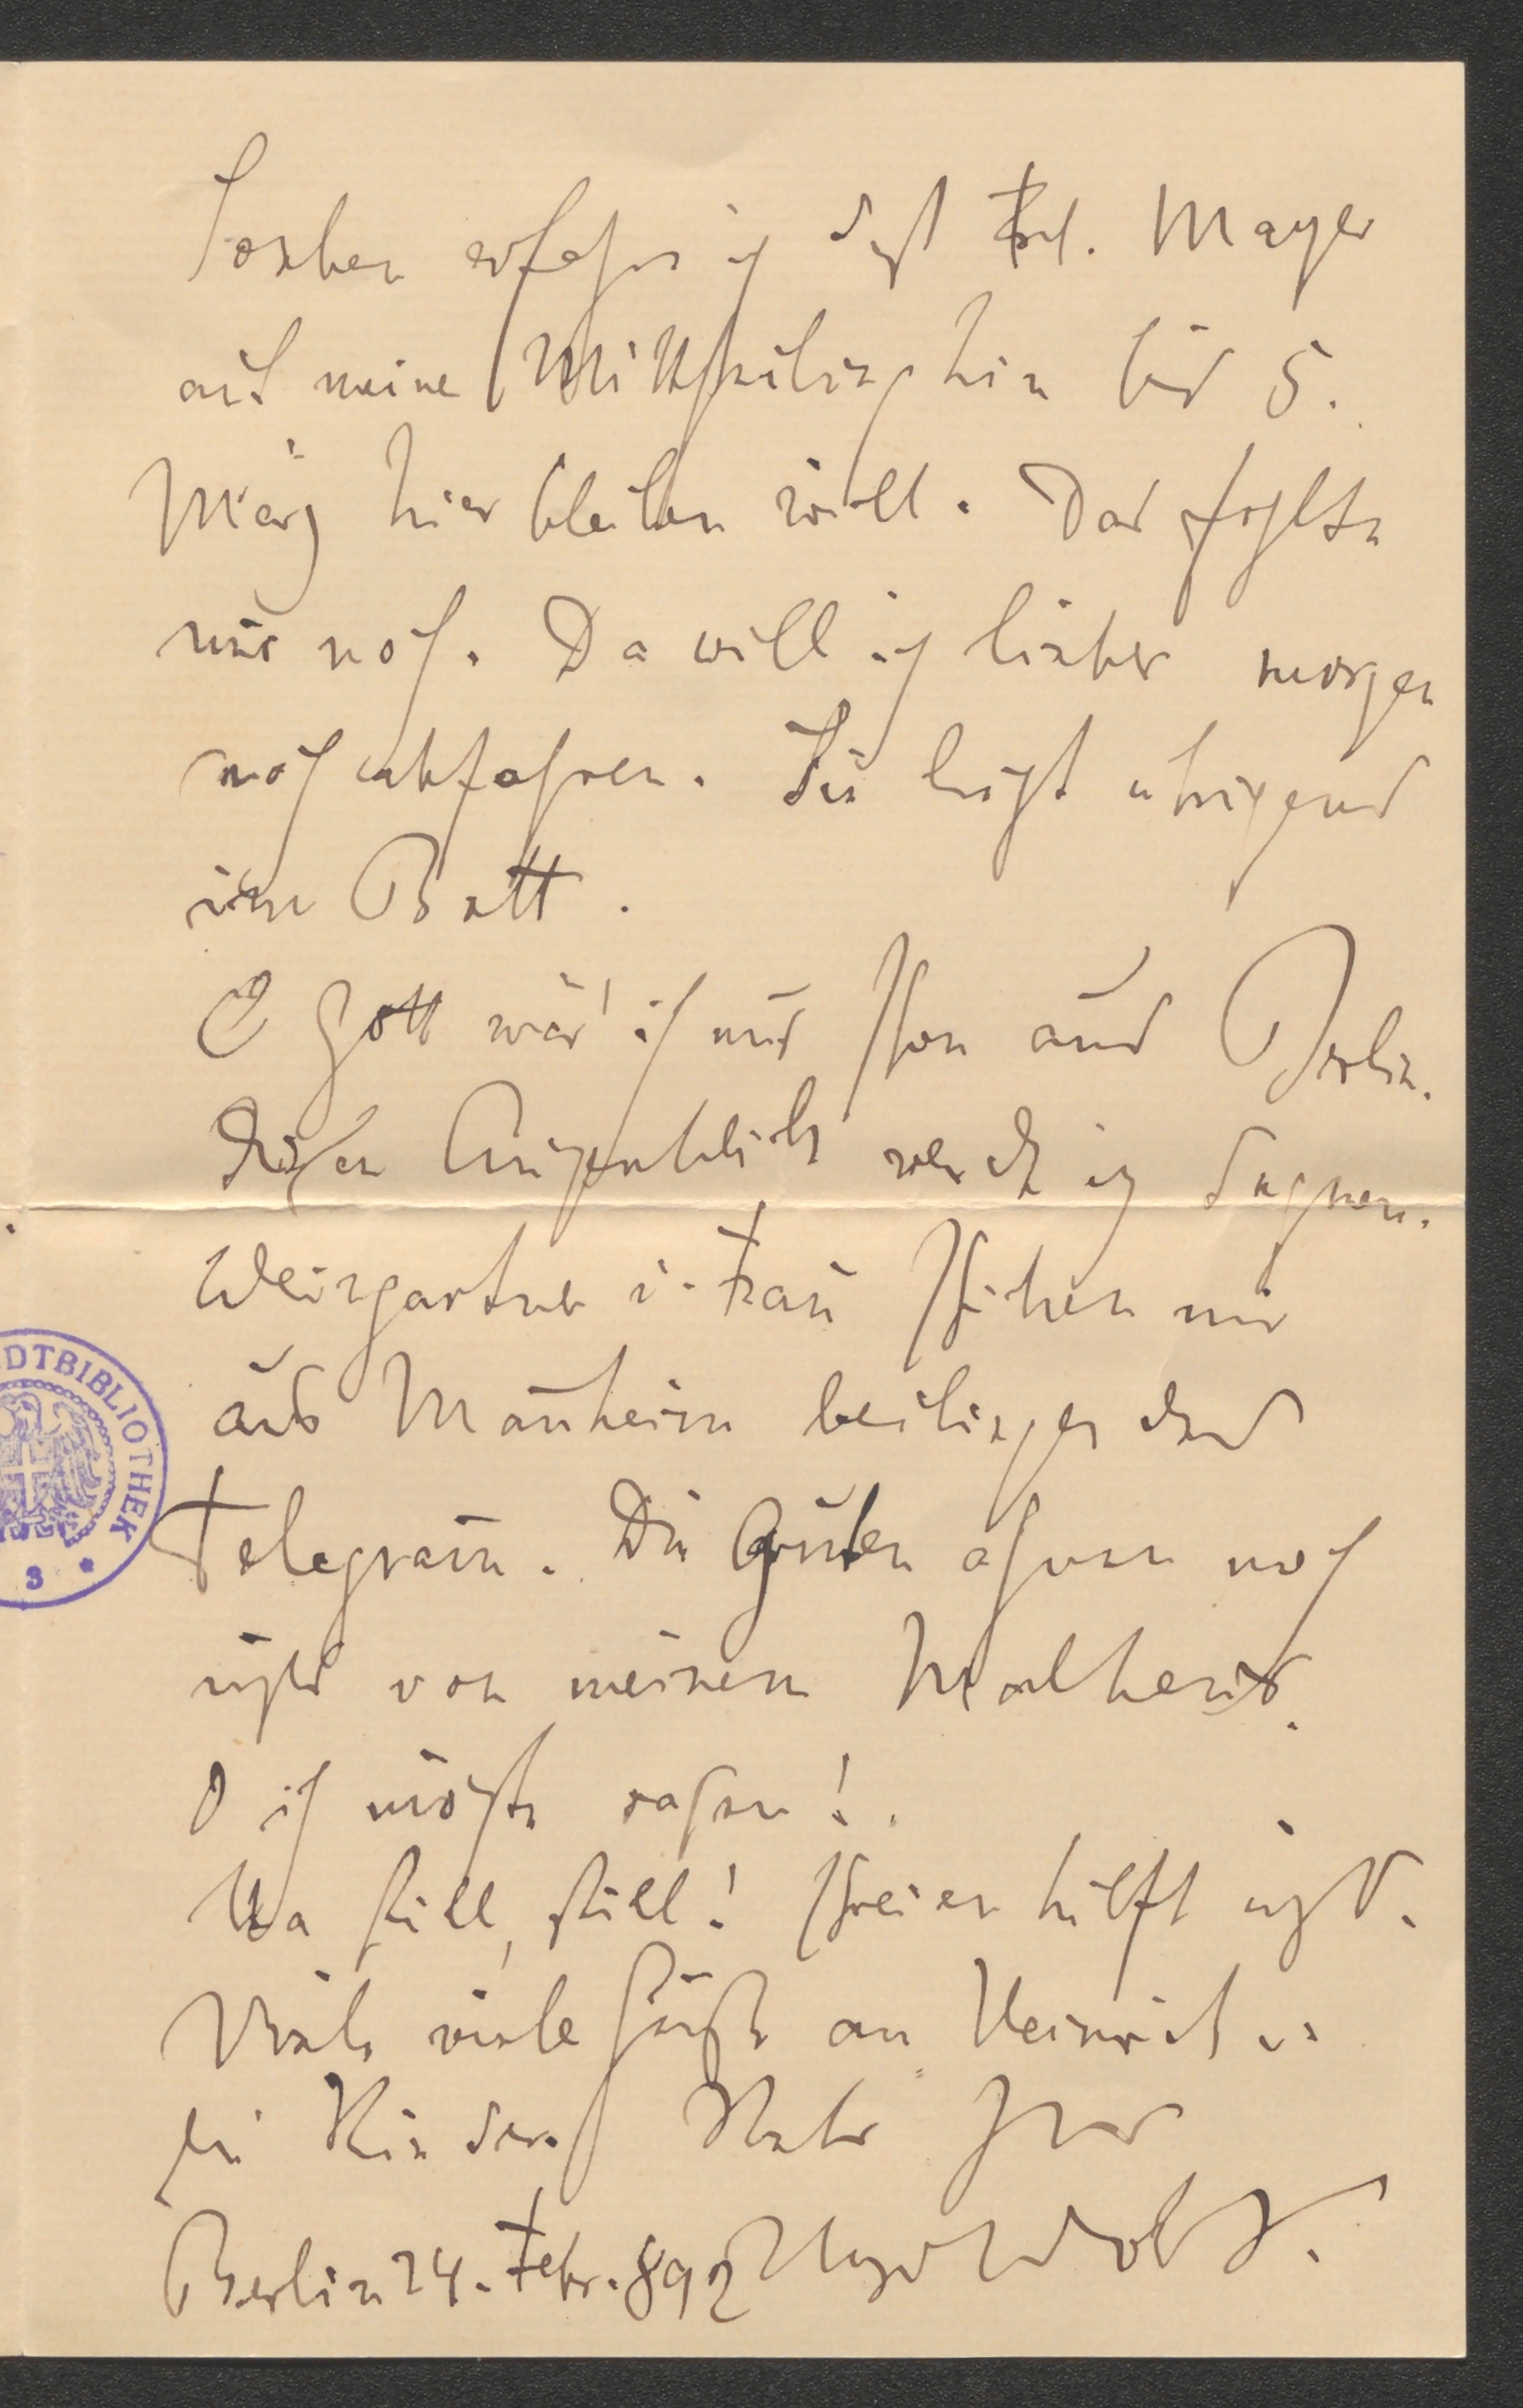 Soeben erfahre ich daß Frl. Mayer
auf meine Mittheilung hin bis 5.
März hier bleiben will. Das fehlte
mir noch. Da will ich lieber morgen
noch abfahren. Sie liegt übrigens
im Bett.
O Gott wär' ich nur schon aus Berlin.
Diesen Augenblick werde ich segnen.
Weingartner u. Frau schicken mir
aus Mannheim beiliegendes
Telegram. Die Guten ahnen noch
nichts von meinem Malheur.
O ich möchte rasen!
Na still, still! Schreien hilft nichts.
Viele viele Grüße an Heinrich u.
die Kinder. Stets Ihr
Berlin 24. Febr. 892 Hugo Wolf.
DTBIBLIOTHEK